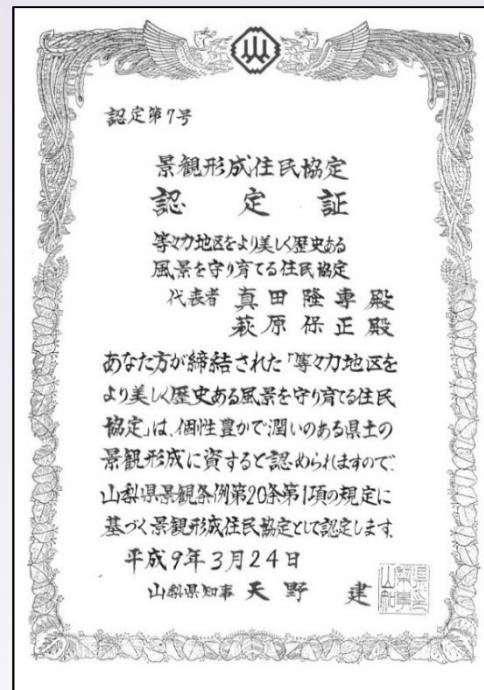 認定第7号
景観形成住民協定
認定証
等々力地区をより美しく歴史ある
風景を守り育てる住民協定
代表者 真田隆専殿
萩原保正殿
あなた方が締結された「等々力地区を
より美しく歴史ある風景を守り育てる住民
協定」は、個性豊かで潤いのある県土の
景観形成に資すると認められますので、
山梨県景観条例第20条第1項の規定に
基づく景観形成住民協定として認定します。
平成9年3月24日
山梨県知事 天野 建